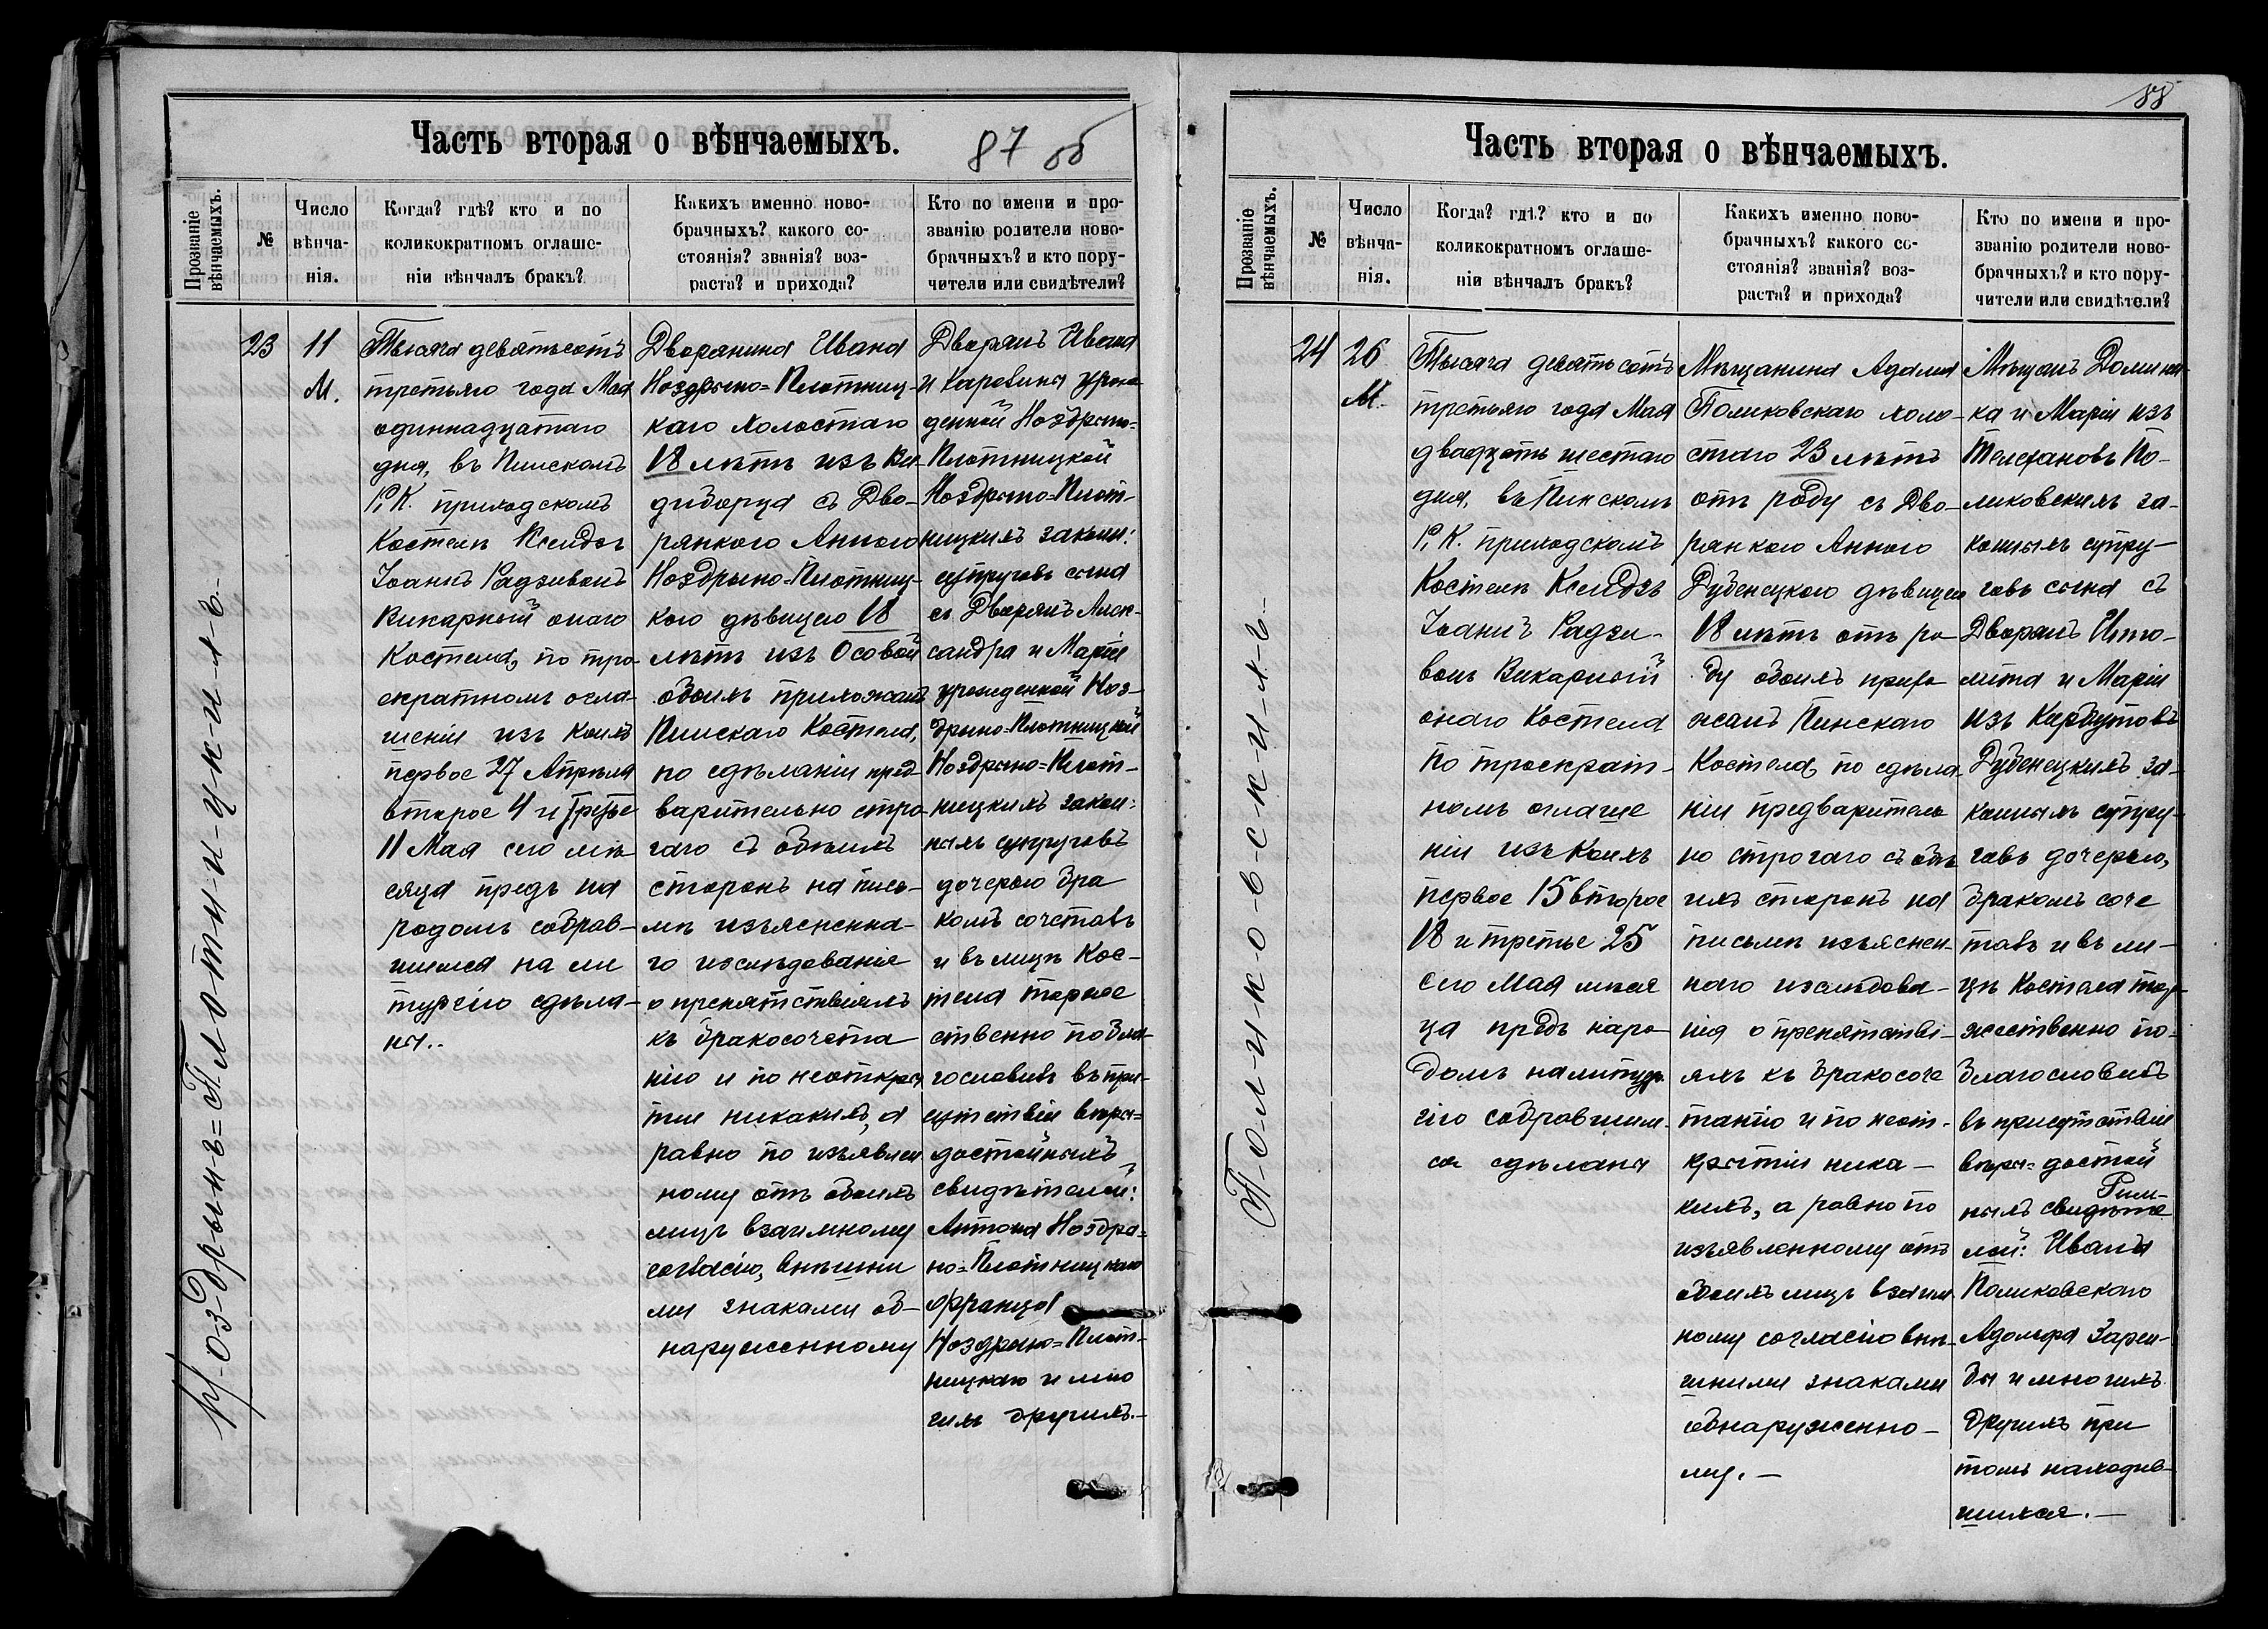 Часть вторая о вѣнчаемыхъ.
87 об
Прозваніе
вѣнчаемыхъ.
№
Число
вѣнча-
нія.
Когда? гдѣ? кто и по
коликократномъ оглаше-
ніи вѣнчалъ бракъ?
Какихъ именно ново-
брачныхъ? какого со-
стоянія? званія? воз-
раста? и прихода?
Кто по имени и про-
званію родители ново-
брачныхъ? и кто пору-
чители или свидѣтели?
Н-оз-дрынъ=Пл-о-т-н-и-ц-к-и-л-ѣ-
23
11
М.
Тысяча девятьсотъ
третьяго года Мая
одиннадцатаго
дня, въ Пинскомъ
Р. К. приходскомъ
Костелѣ Ксендзъ
Іоаннъ Радзивонъ
Викарный онаго
Костела, по тро-
екратномъ огла-
шеніи изъ коихъ
первое 27 Апрѣля
второе 4 и третье
11 Мая сего мѣ-
сяца предъ на
родомъ собрав-
шимся на ли
тургію сдѣла-
ны..
Дворянина Ивана
Ноздрыно=Плотниц-
каго холостаго
18 лѣтъ изъ Ви-
дибора съ Дво-
рянкою Анною
Ноздрыно=Плотниц-
кою дѣвицею 18
лѣтъ изъ Особой
обоихъ прихожанъ
Пинскаго Костела,
по сдѣланіи пред-
варительно стро
гаго съ обѣихъ
сторонъ на пись-
мѣ изъясненна-
го изслѣдованія
о препятствіяхъ
къ бракосочета
нію и по неоткры
тіи никакихъ, а
равно по изъявлен
ному отъ обоихъ
лицъ взаимному
согласію, внѣшни
ми знаками об-
наруженному
Дворянъ Ивана
и Каролины урож-
денной Ноздрыно-
Плотницкой
Ноздрыно=Плот-
ницкихъ закон:
супруговъ сына
съ Дворянъ Алек-
сандра и Маріи
урожденной Ноз-
дрыно=Плотницкой
Ноздрыно=Плот-
ницкихъ закон:
ныхъ супруговъ
дочерью бра
комъ сочеталъ
и въ лицѣ Кос-
тела торже
ственно побла-
гословилъ въ при-
сутствіи вѣры=
достойныхъ
свидѣтелей:
Антона Ноздры=
но=Плотницкаго
Франца
Ноздрыно=Плот-
ницкаго и мно
гихъ другихъ.-
88
Часть вторая о вѣнчаемыхъ.
Прозваніе
вѣнчаемыхъ.
№
Число
вѣнча-
нія.
Когда? гдѣ? кто и по
коликократномъ оглаше-
ніи вѣнчалъ бракъ?
Какихъ именно ново-
брачныхъ? какого со-
стоянія? званія? воз-
раста? и прихода?
Кто по имени и про-
званію родители ново-
брачныхъ? и кто пору-
чители или свидѣтели?
П-о-л-и-к-о-в-с-к-и-х-ъ-
24
26
М.
Тысяча девятьсотъ
третьяго года Мая
двадцать шестаго
дня, въ Пинскомъ
Р. К. приходскомъ
Костелѣ Ксендзъ
Іоаннъ Радзи-
вонъ Викарный
онаго Костела
по троекрат-
номъ оглаше
ніи изъ коихъ
первое 15 второе
18 и третье 25
сего Мая мѣся
ца предъ наро
домъ на литур
гію собравшим-
ся сдѣланы
Мѣщанина Адама
Поликовскаго холо-
стаго 23 лѣтъ
отъ роду съ Дво-
рянкою Анною
Дубенецкою дѣвицею
18 лѣтъ отъ ро
ду обоихъ прихо
жанъ Пинскаго
Костела, по сдѣла
ніи предваритель
но строгаго съ обѣ
ихъ сторонъ на
письмѣ изъяснен-
наго изслѣдова-
нія о препятстві-
яхъ къ бракосоче
танію и по неот-
крытіи ника-
кихъ, а равно по
изъявленному отъ
обоихъ лицъ взаим
ному согласію внѣ-
шними знаками
обнаруженно-
му.-
Мѣщанъ Домини-
ка и Маріи изъ
Телефановъ По-
ликовскихъ за-
конныхъ супру-
говъ сына съ
Дворянъ Иппо-
лита и Маріи
изъ Карбутовъ
Дубенецкихъ за-
конныхъ супру-
говъ дочерью,
бракомъ соче
талъ и въ ли-
цѣ Костела тор-
жественно по-
благословилъ
въ присутствіи
вѣры=достой
ныхъ свидѣте
лей: Ивана
Поликовскаго
Адольфа Зарем-
бы и многихъ
другихъ при
томъ находив-
шихся.-